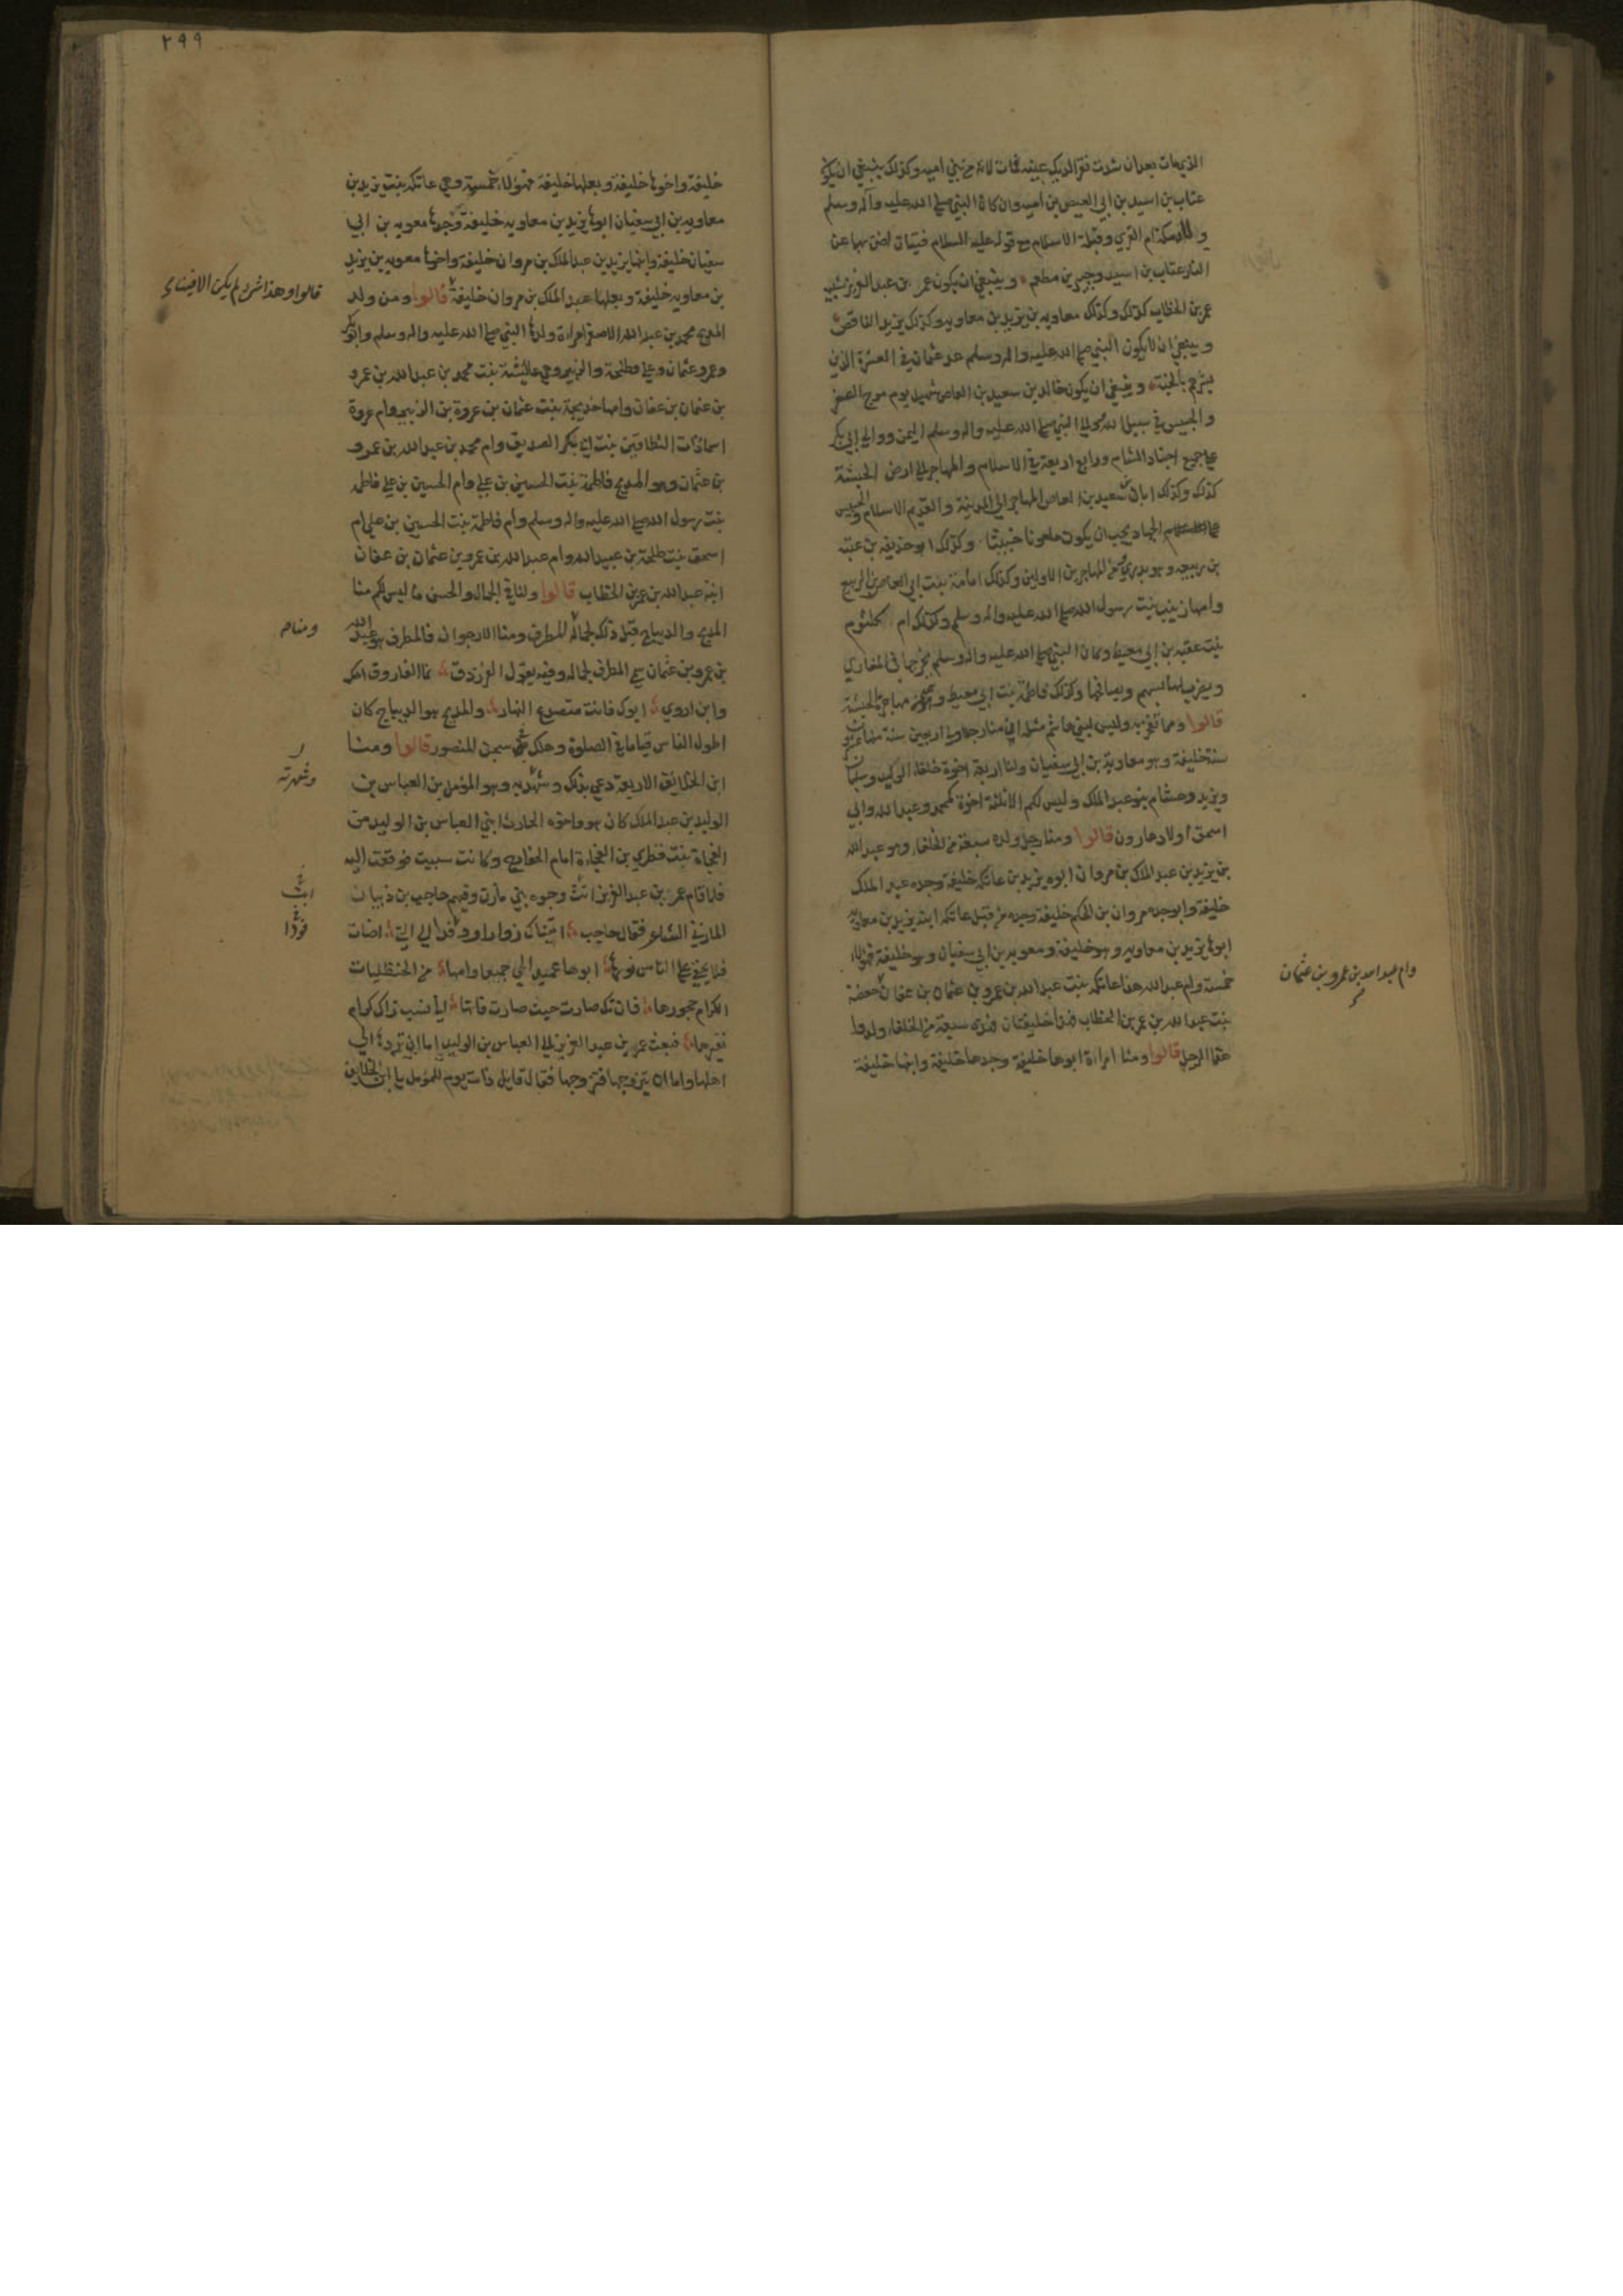 الذي مات بعد ان شدت نقر الديك عينه فمات لانه من بني اميه وكذلك ينبغي ان يكون
عتاب بن اسيد بن ابي العيص بن اميه وان كان النبي صلى الله عليه وآله وسلم
ولاه مكة ام القري وقبلة الاسلام مع قوله عليه السلام فتيان اضن بهما عن
النار عتاب بن اسيد وجبير بن مطعم وينبغي ان يكون عمر بن عبد العزيز شبيه
عمر بن الخطاب كذلك وكذلك معاويه بن يزيد بن معاويه وكذلك يزيد الناقص
وينبغي ان لا يكون النبي صلى الله عليه واله وسلم عد عثمان في العشرة الذين
بشرهم بالجنة وينبغي ان يكون خالد بن سعيد بن العاص شهيد يوم مرج الصفر
والحبيس في سبيل الله ووالي النبي صلى الله عليه واله وسلم اليمن ووالي ابي بكر
علي جميع اجناد الشام ورابع اربعة في الاسلام والمهاجر الي ارض الحبشة
كذلك وكذلك ابان بن سعيد بن العاص المهاجر الي المدينة والقديم الاسلام والحبيس
علي الجهاد يجب ان يكون ملعونا خبيثا وكذلك ابو حذيفه بن عتبه
بن ربيعه وهو بدري من المهاجرين الاولين وكذلك امامة بنت ابي العاص بن الربيع
وامها زينب بنت رسول الله صلى الله عليه واله وسلم وكذلك ام كلثوم
بنت عقبه بن ابي معيط وكان النبي صلى الله عليه واله وسلم يخرجها في المغازي
ويضرب لها بسهم ويصافحها وكذلك فاطمة بنت ابي معيط وهي من مهاجرة الحبشة
قالوا ومما نفخر به وليس لبني هاشم مثله ان منا رجلا ولي اربعين سنة منها عشرون
سنة خليفة وهو معاوية بن ابي سفيان ولنا اربعة اخوة خلفاء الوليد وسليمان
ويزيد وهشام بنو عبد الملك وليس لكم الا ثلثة اخوة محمد وعبد الله وابي
اسحق اولاد هارون قالوا ومنا رجل ولده سبعة من الخلفاء وهو عبد الله
بن يزيد بن عبد الملك بن مروان ابوه يزيد بن عاتكة خليفة وجده عبد الملك
خليفة وابو جده مروان بن الحكم خليفة وجده من قبل عاتكه ابنة يزيد بن معاويه
ابوها يزيد بن معاويه وهو خليفة ومعويه بن ابي سفيان وهو خليفة فهؤلاء
خمسة وام عبد الله هذا عاتكه بنت عبد الله بن عمرو بن عثمان بن عفان حفصة
بنت عبد الله بن عمر بن الخطاب فهذا خليفتان فهذه سبعة من الخلفاء ولدوا
هذا الرجل قالوا ومنا امراة ابوها خليفة وجدها خليفة وابنها خليفة
وام عبد الله بن عمرو بن عثمان
٢٩٩
خليفة واخوها خليفة وبعلها خليفة فهؤلاء خمسة وهي عاتكه بنت يزيد بن
معاويه بن ابي سفيان ابوها يزيد بن معاويه خليفة وجدها معويه بن ابي
سفيان خليفة وابنها يزيد بن عبد الملك بن مروان خليفة واخوها معويه بن يزيد
بن معاويه خليفة وبعلها عبد الملك بن مروان خليفة قالوا ومن ولد
المدبج محمد بن عبد الله الاصغر امراة ولدها النبي صلى الله عليه واله وسلم وابو بكر
وعمر وعثمان وعلي وطلحة والزبير وهي عائشة بنت محمد بن عبد الله بن عمرو
بن عثمان بن عفان وامها خديجة بنت عثمان بن عروة بن الزبير وام عروة
اسما ذات النطاقين بنت ابي بكر الصديق وام محمد بن عبد الله بن عمرو
بن عثمان وهو المدبج فاطمة بنت الحسين بن علي وام الحسين بن علي فاطمة
بنت رسول الله صلى الله عليه واله وسلم وام فاطمة بنت الحسين بن علي ام
اسحق بنت طلحة بن عبيد الله وام عبد الله بن عمرو بن عثمان بن عفان
ابنة عبد الله بن عمر بن الخطاب قالوا ولنا في الجمال والحسن ما ليس لكم منا
المدبج والديباج قيل ذلك لجماله المطرف ومنا الارجوان فالمطرف هو عبد الله
بن عمرو بن عثمان سمي المطرف لجماله وفيه يقول الفرزدق نما الفاروق امك
وابن اروي ابوك فانت منصدع النهار والمدبج هو الديباج كان
اطول الناس قياما في الصلوة وهلك في سجن المنصور قالوا ومنا
ابن الخلائف الاربعة دعي بذلك وشهر به وهو المؤمل بن العباس بن
الوليد بن عبد الملك كان هو واخوه الحارث ابني العباس بن الوليد من
الفجاة بنت قطري بن الفجاءة امام الخوارج وكانت سبيت فوقعت اليه
فلما قام عمر بن عبد العزيز اتت وجوه بني مازن وفيهم حاجب بن ذبيان
المازني الشاعر فقال حاجب اتيناك زوارا ووفدا الي التي اضات
فلا يخفي علي الناس نورها ابوها عميد الحي جميعا وامها من الحنظليات
الكرام حجورها فان تك صارت حيث صارت فانها الي نسب زاك كرام
نفيرها فبعث عمر بن عبد العزيز الي العباس بن الوليد اما ان تردها الي
اهلها واما ان تتزوجها فتزوجها فقال قايل ذات يوم للمؤمل يا ابن الخلايف
قالوا وهذا شرف لم يكن الا فينا
ومنا
وشهرته